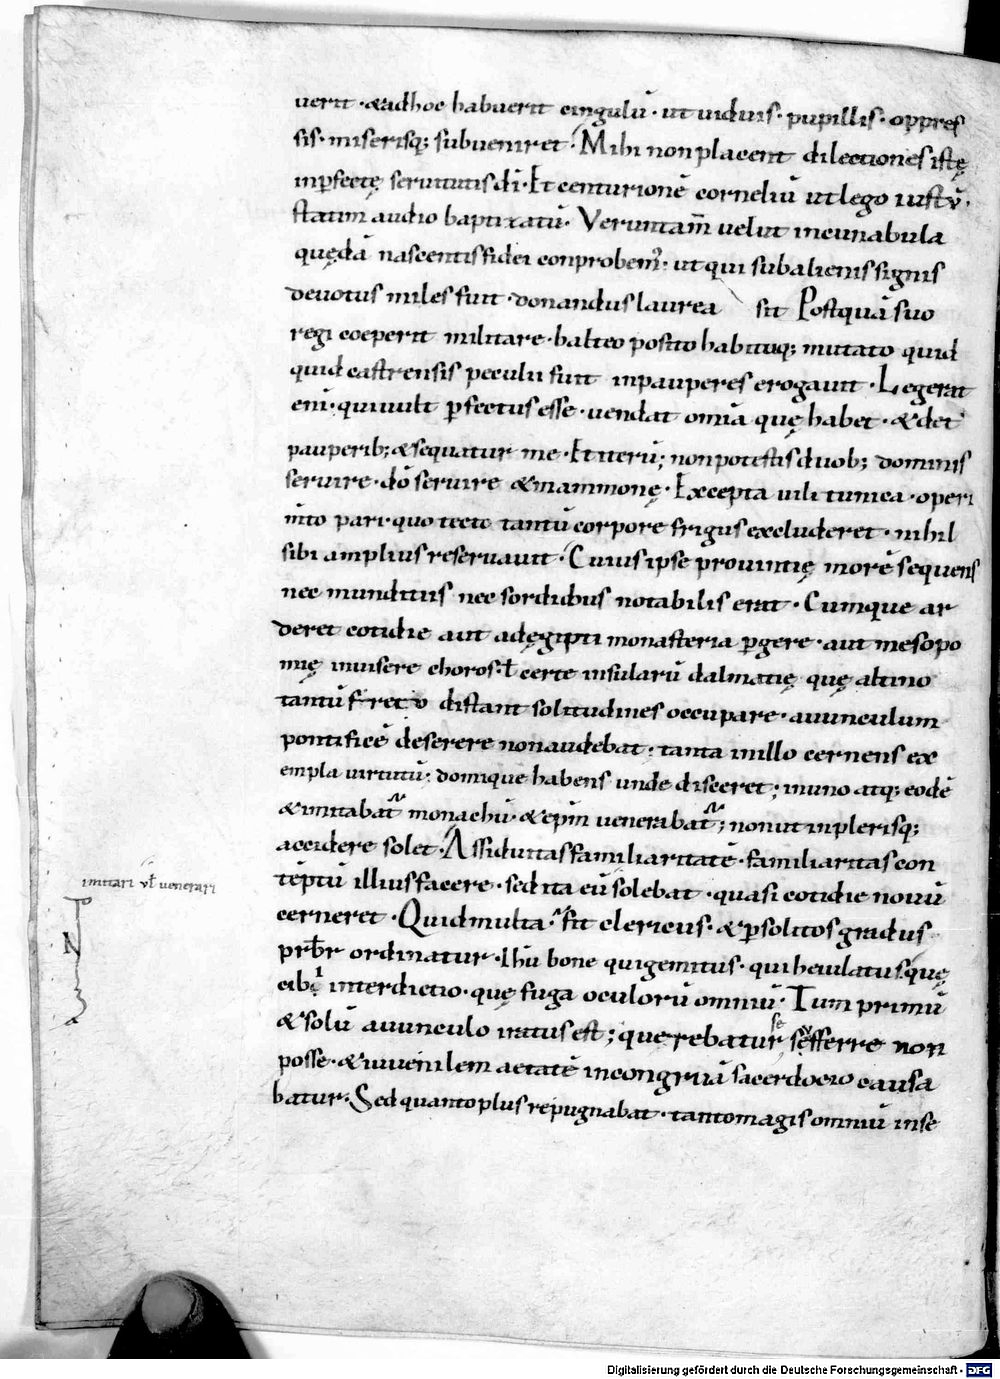 uerit · & ad hoc habuerit cingulū · ut uiduis · pupillis · oppres
sis · miserisq; subueniret · Mihi non placent dilectiones istę
inpfectę seruitutis dī · Et centurionē corneliū ut lego iustū ·
statim audio baptizatū · Veruntam̄ uelut incunabula
quędā nascentis fidei conprobem᷒ · ut qui sub alienis signis
deuotus miles fuit · donandus laurea sit Postquā suo
regi coeperit militare · balteo posito habituq; mutato quid
quid castrensis peculii fuit in pauperes erogauit · Legerat
eni · qui uult pfectus esse · uendat omīa quę habet · & det
pauperib; & sequatur me · Et iterū; non potestis duob; dominis
seruire · dō seruire & mammonę · Excepta uili tunica · operi
mto pari · quo tecto tantū corpore frigus excluderet · nihil
sibi amplius reseruauit · Cuius ipse prouintię morē sequens
nec munditiis nec sordibus notabilis erat · Cumque ar
deret cotidie aut ad ęgipti monasteria pgere · aut mesopo
mię inuisere choros · ł certe insularū dalmatię quę altino
tantū freto distant solitudines occupare · auunculum
pontificē deserere non audebat · tanta in illo cernens ex
empla uirtutū · domique habens unde disceret; in uno atq; eodē
& imitabat᷒ monachū · & ep̄m uenerabat᷒; non ut in plerisq;
accidere solet · Assiduitas familiaritatē · familiaritas con
tēptū illius facere · sed ita eū solebat · quasi cotidie nouū
imitari vł venerari
cerneret · Quid multa · fit clericus · & p solitos gradus
prb̄r ordinatur · Ihū bone qui gemitus · qui heiulatus · quę
cibi interdictio · quę fuga oculorū omniū · Tum primū
& solū auunculo iratus est; querebatur se fferre non
posse · & iuuenilem aetatē incongruā sacerdocio causa
batur · Sed quanto plus repugnabat · tanto magis omniū in se
Digitalisierung gefördert durch die Deutsche Forschungsgemeinschaft - DFG